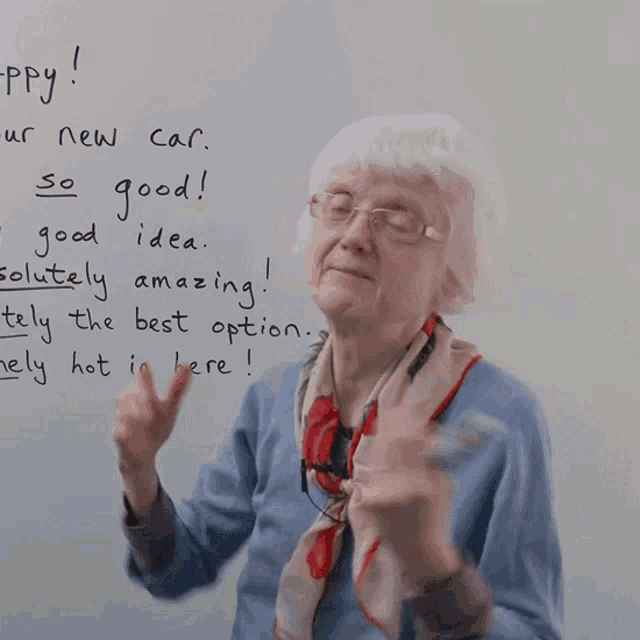 ppy!
ur new car.
so good!
good idea.
solutely amazing!
tely the best option.
nely hot in here!